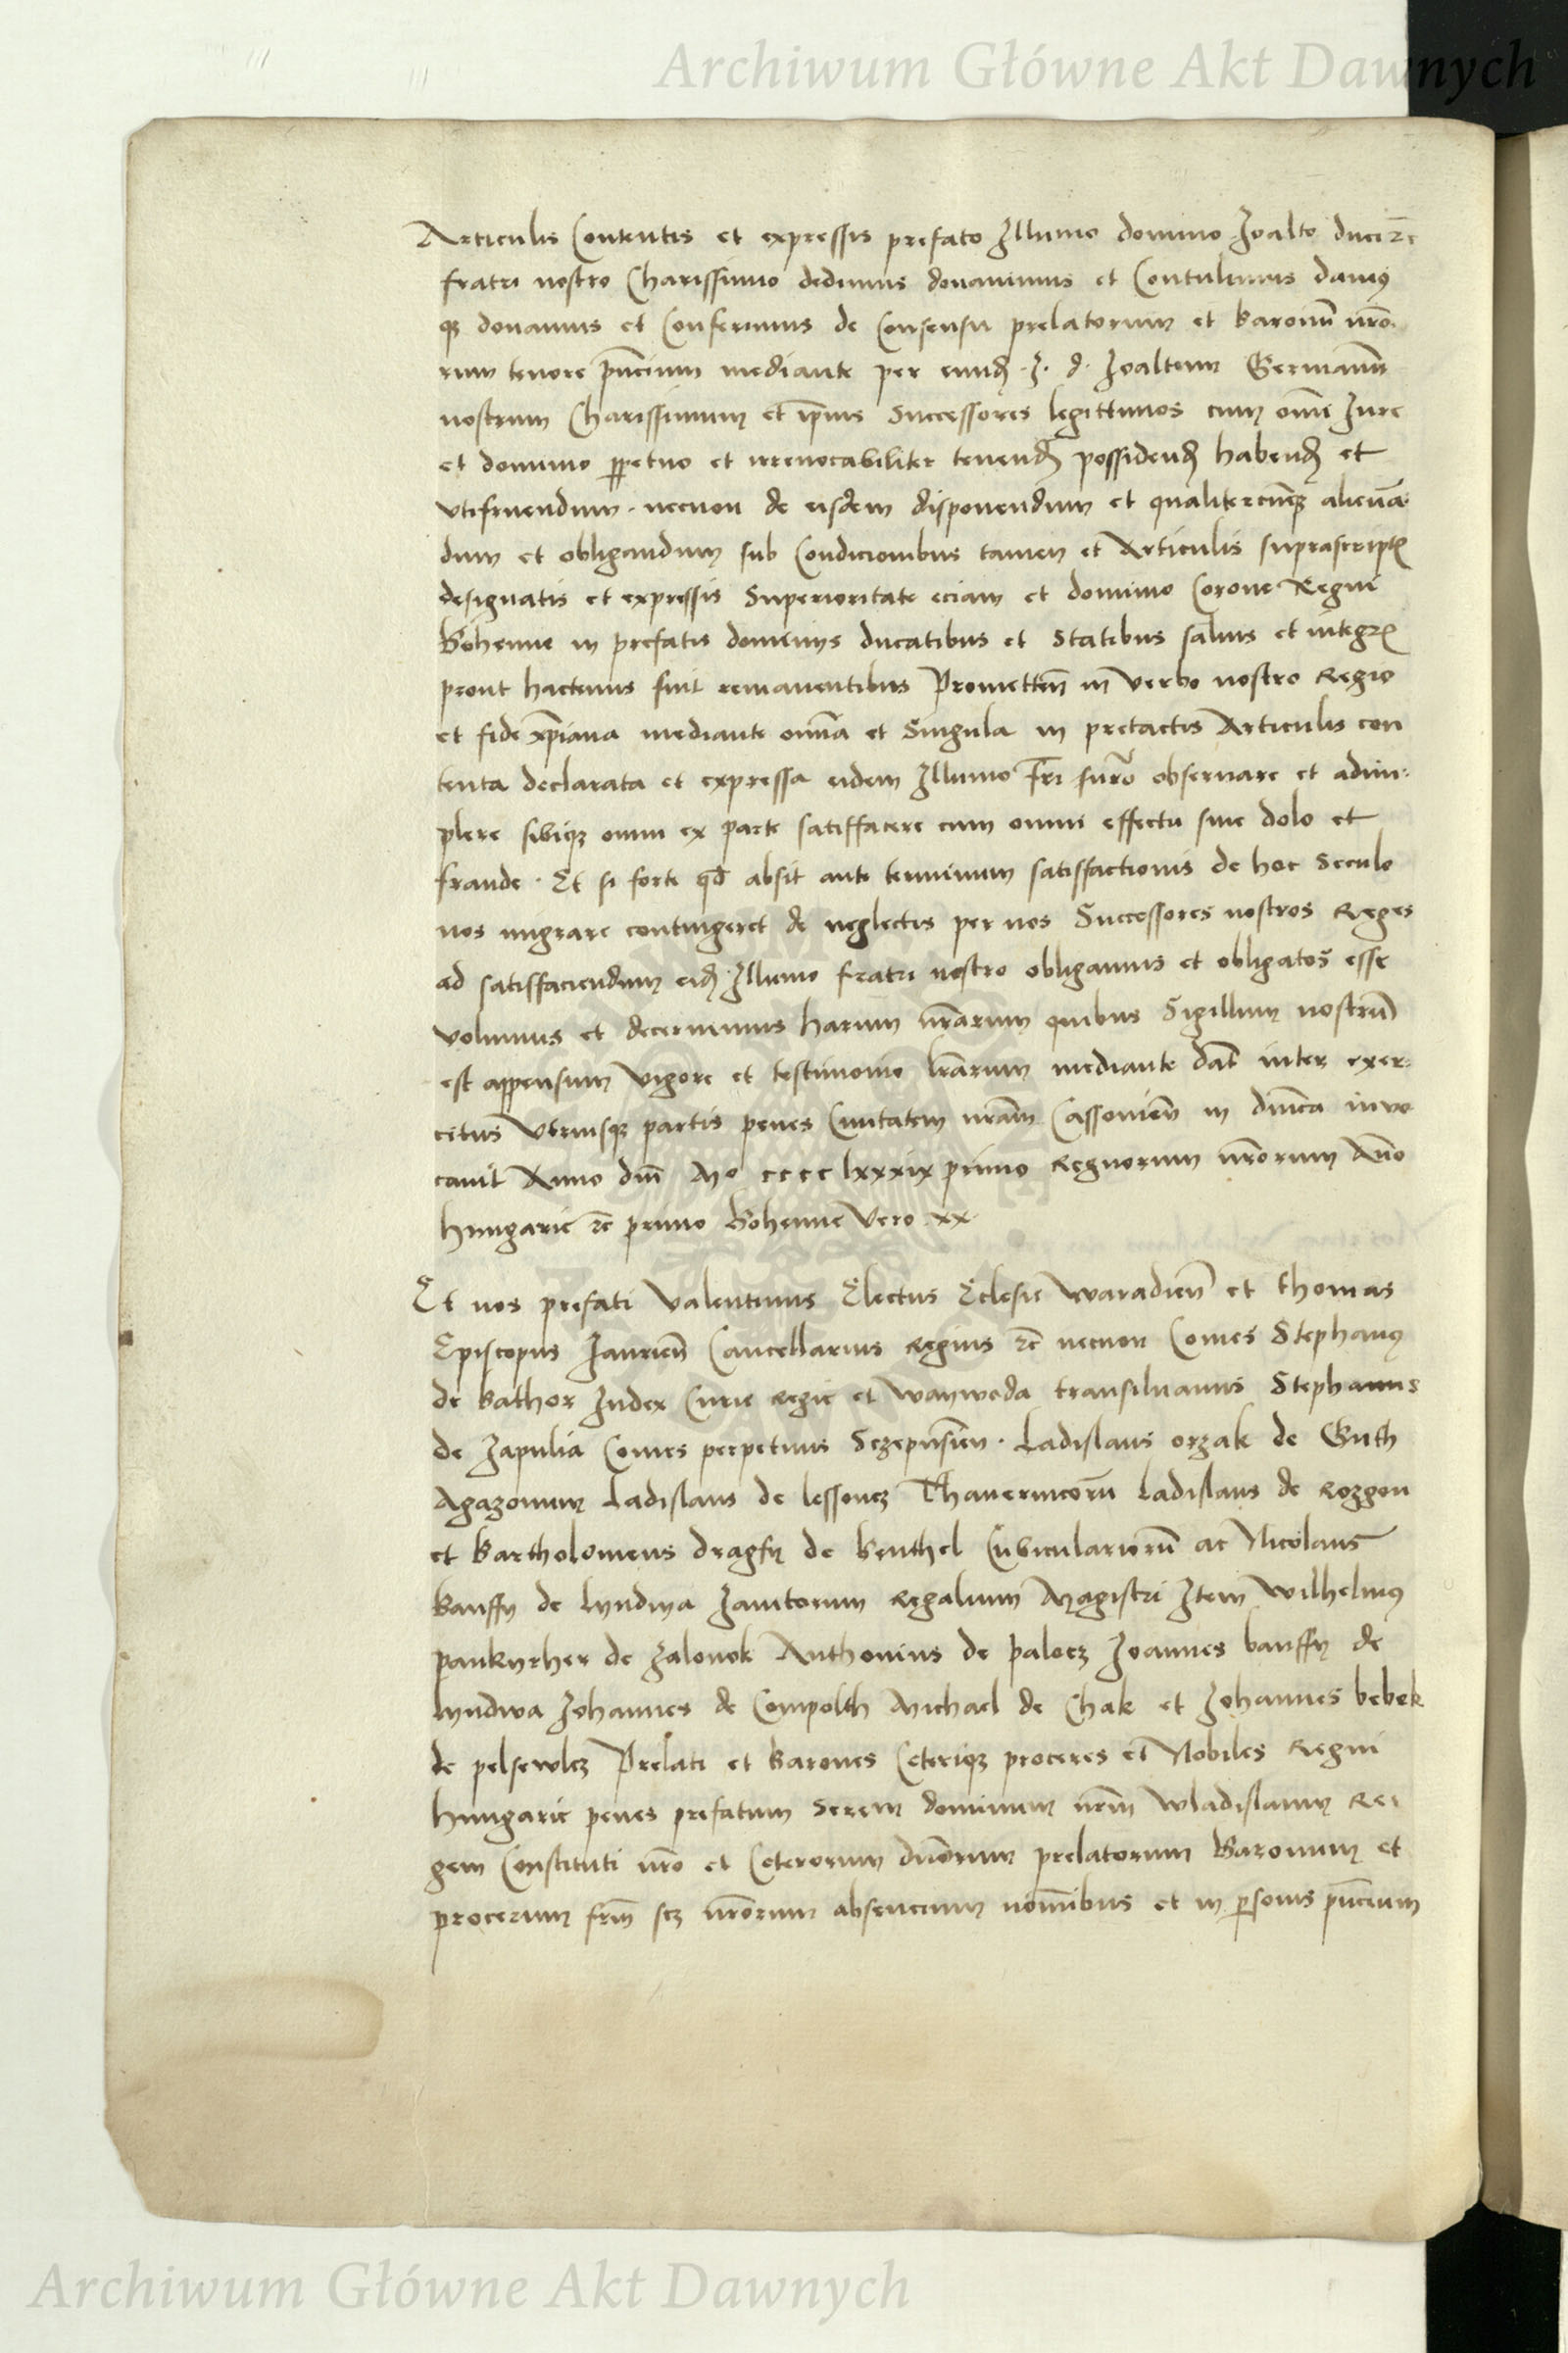 Archiwum Główne Akt Dawnych
Articulis Contentis et expressis prefato Illumo domino Joalto duci ꝛc
fratri nostro Charissimo dedimus donavimus et Contulimus damꝰ
qꝫ donamus et Conferimus de Consensu prelatorum et Baronū nr̄o
rum tenore pn̄cium mediante per eundꝫ . I . d . Joaltum Germanū
nostrum Charissimum et ip̄ius Successores legittimos cum om̄i Jure
et dominio ꝑpetuo et irrevocabiliter tenendꝫ possidendꝫ habendꝫ et
vtifruendum . necnon de eisdem disponendum et qualitercunqꝫ alienā-
dum et obligandum sub Condicionibus tamen et Articulis suprascriptꝭ
designatis et expressis Superioritate eciam et dominio Corone Regni
Bohemie in prefatis dominijs ducatibus et Statibus saluis et integrꝭ
prout hactenus fuit remanentibus Promitten̄ in verbo nostro Regio
et fide xp̄iana mediante omnīa et Singula in pretactis Articulis con
tenta declarata et expressa eidem Illumo Fri nr̄o observare et adim-
plere sibiqꝫ omni ex parte satisffacere cum omni effectu sine dolo et
fraude . Et si forte qd̄ absit ante terminum satisfactionis de hoc Seculo
nos migrare contingeret de neglectis per nos Successores nostros Reges
ad satisffaciendum eidꝫ Illumo fratri nostro obligamus et obligatos esse
volumus et decernimus harum nr̄arum quibus Sigillum nostrū
est appensum vigore et testimonio lr̄arum mediante dat̄ inter exer-
citus vtriusqꝫ partis penes Civitatem nr̄am Cassovien̄ in dn̄ica invo
cavit Anno dn̄i Mo cccc lxxxix primo Regnorum nr̄orum An̄o
hungarie ꝛc primo Bohemie Vero xx
Et nos prefati Valentinus Electus Eclesie Waradien̄ et Thomas
Episcopus Jaurien̄ Cancellarius Regius ꝛc necnon Comes Stephanꝰ
de Bathor Judex Curie Regie et Waywoda transilvanus Stephanus
de Zapulia Comes perpetuus Sczepusien̄ . Ladislaus orzak de Guth
Agazonum Ladislaus de lessoncz Thavernicorū Ladislaus de Rozgon
et Bartholomeus dragfy de Benthel Cubiculariorū ac Nicolaus
Banffy de lyndwa Janitorum Regalium Magistri Item Wilhelmꝰ
pankyrher de Zalonok Anthonius de palocz Joannes banffy de
lyndwa Johannes de Compolth Michael de Chak et Johannes bebek
de pelsewlcz Prelati et Barones Ceteriqꝫ proceres et Nobiles Regni
hungarie penes prefatum Serem dominum nr̄m Wladislaum Re
gem Constituti nr̄o et Ceterorum dn̄orum prelatorum Baronum et
procerum fr̄m scꝫ nr̄orum absencium nom̄ibus et in ꝑsonis pn̄cium
Archiwum Główne Akt Dawnych